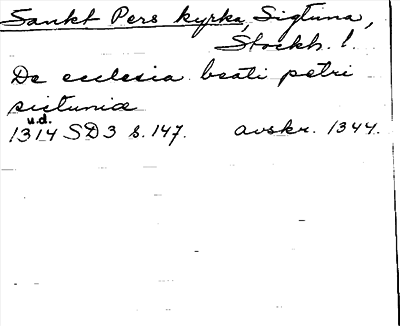 Sankt Pers kyrka, Sigtuna,
Stockh. l.
De ecclesia beati petri
sictunie
u.d.
1314 SD3 s. 147. avskr. 1344.